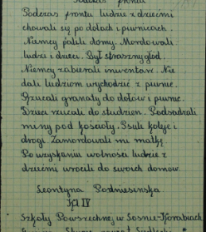 Podczas frontu
Podczas frontu ludzie z dziećmi
chowali się po dołach i piwnicach.
Niemcy palili domy. Mordowali
ludzi i dzieci. Był straszny głód.
Niemcy zabierali inwentarz. Nie
dali ludziom wychodzić z piwnic.
Rzucali granaty do dołów i piwnic.
rzucali do studzien. Podsadzali
miny pod kościoły. Psuli koleje i
drogi. Zamordowali mi matkę.
Po uzyskaniu wolności ludzie z
dziećmi wrócili do swoich domów.
Leontyna
kl IV
Szkoły Powszechnej w